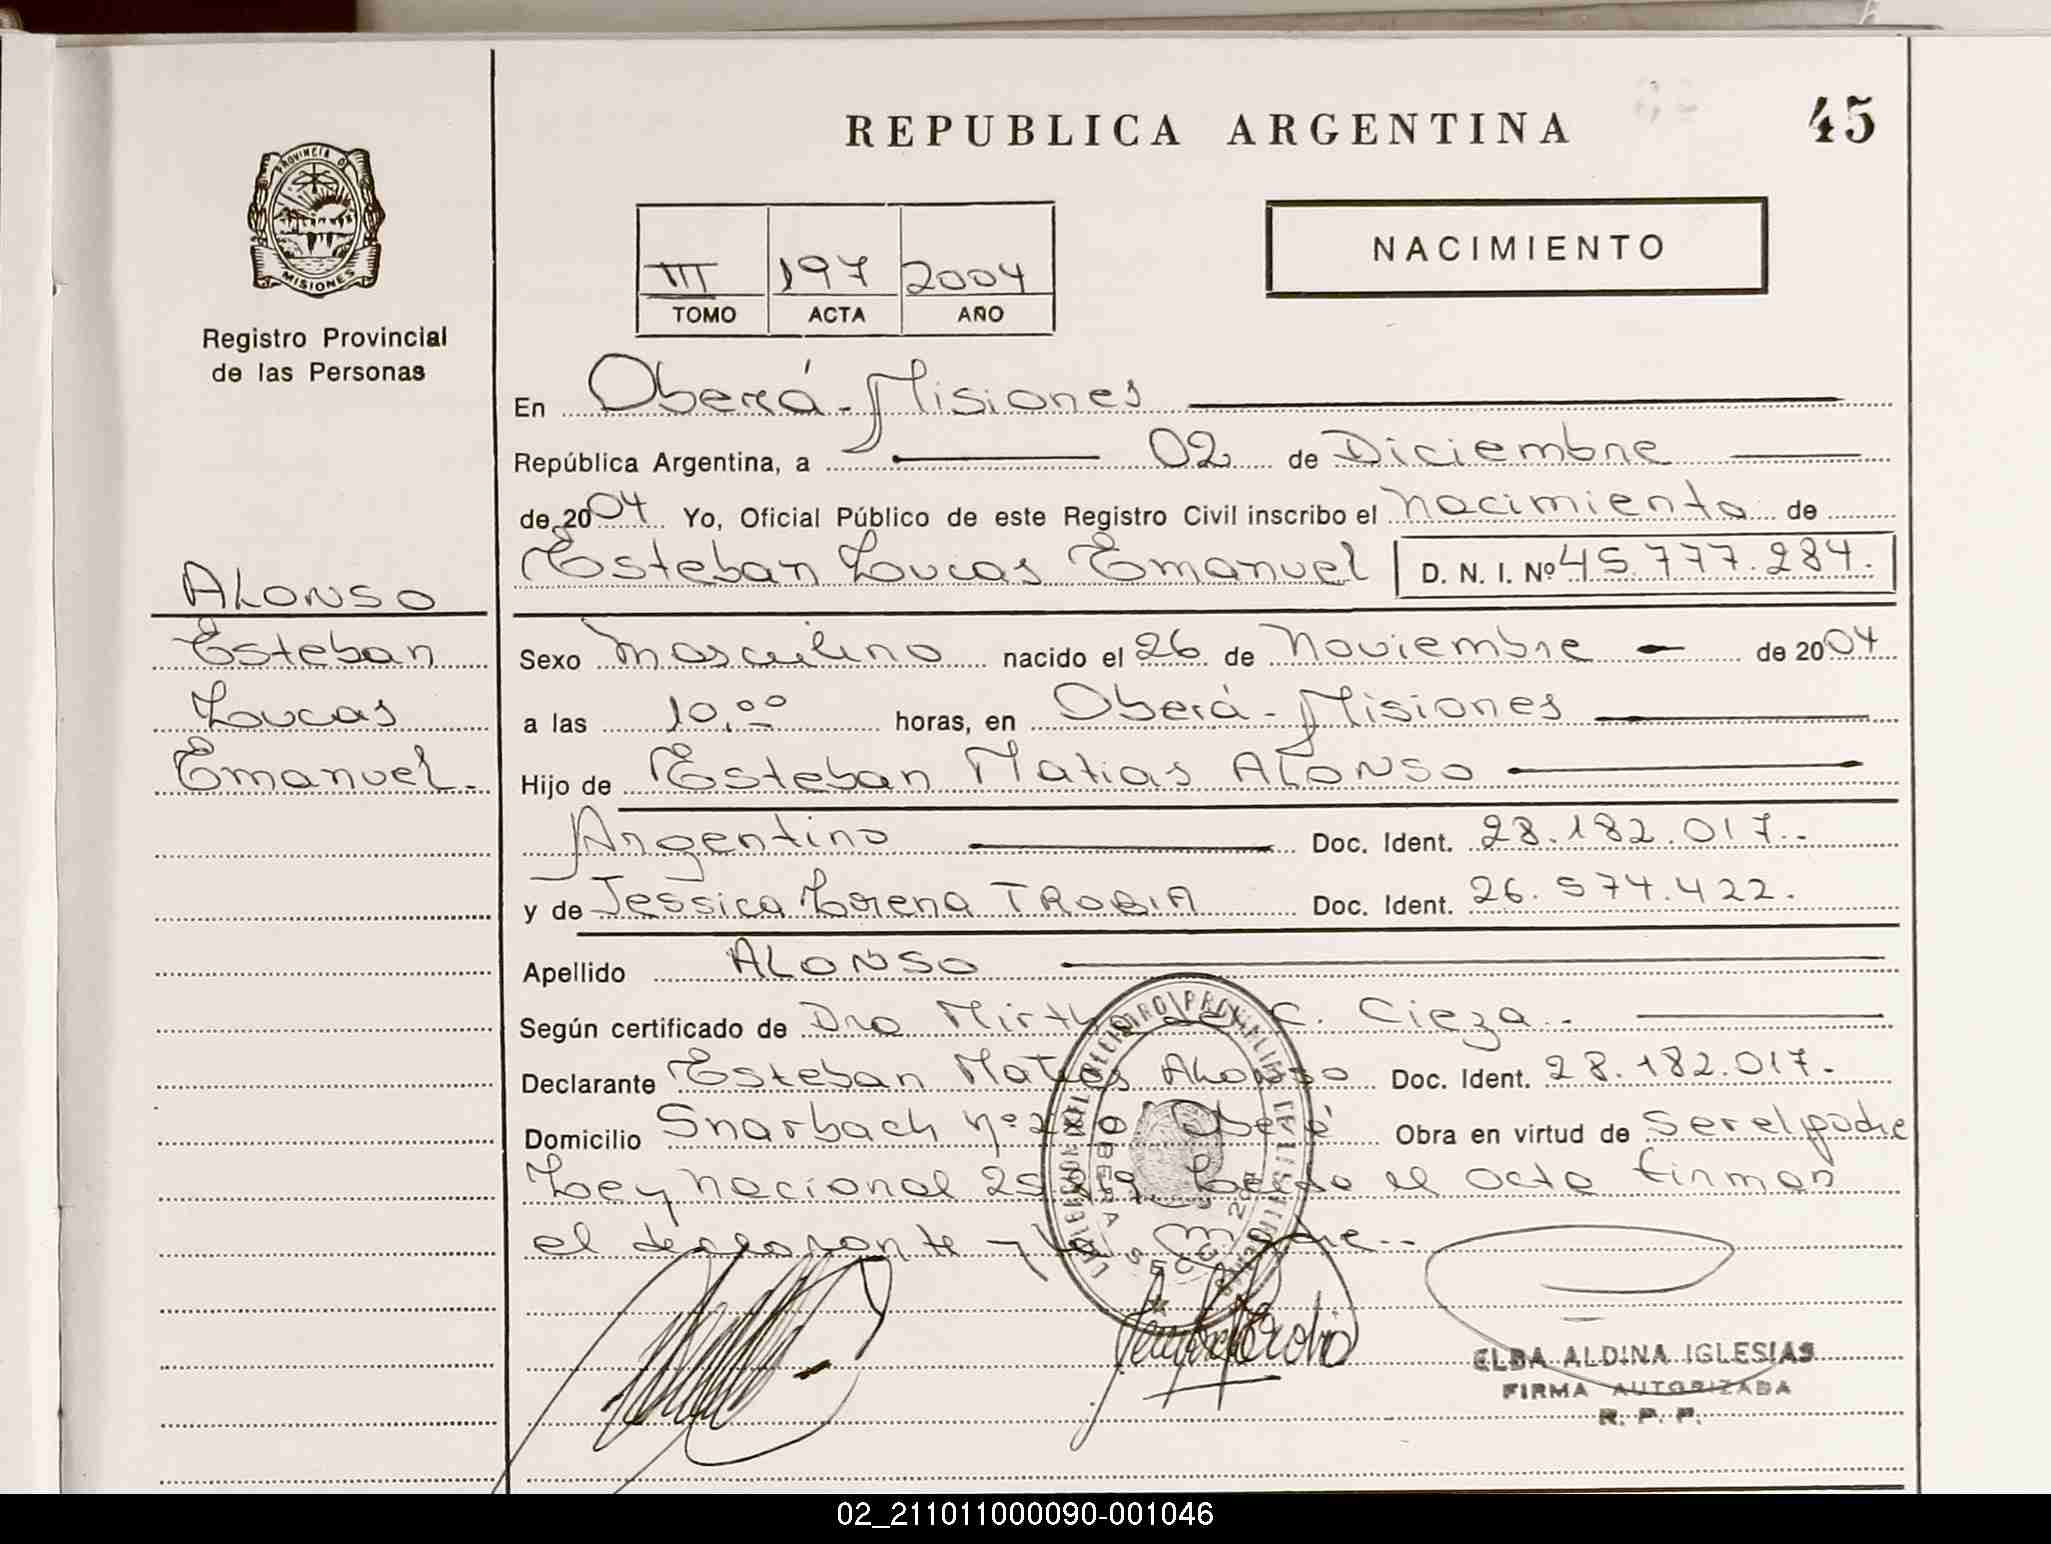 REPUBLICA ARGENTINA
45
PROVINCIA D
MISIONES
Registro Provincial
de las Personas
III 197 2004
TOMO ACTA AÑO
NACIMIENTO
En Oberá - Misiones
República Argentina, a 02 de Diciembre
de 2004 Yo, Oficial Público de este Registro Civil inscribo el nacimiento de
Esteban Lucas Emanuel D. N. I. Nº 45.777.284.
ALONSO
Esteban
Lucas
Emanuel.
Sexo masculino nacido el 26 de Noviembre de 2004
a las 10,00 horas, en Oberá - Misiones
Hijo de Esteban Matias ALONSO
Argentino Doc. Ident. 28.182.017.
y de Jessica Lorena TROBIA Doc. Ident. 26.574.422.
Apellido ALONSO
Según certificado de Dra Mirtha C. Cieza.
Declarante Esteban Matias Alonso Doc. Ident. 28.182.017.
Domicilio Snarbach nº Oberá Obra en virtud de ser el padre
Ley nacional Leida el acta firman
el declarante y la madre.
ELBA ALDINA IGLESIAS
FIRMA AUTORIZADA
R. P. P.
02_211011000090-001046